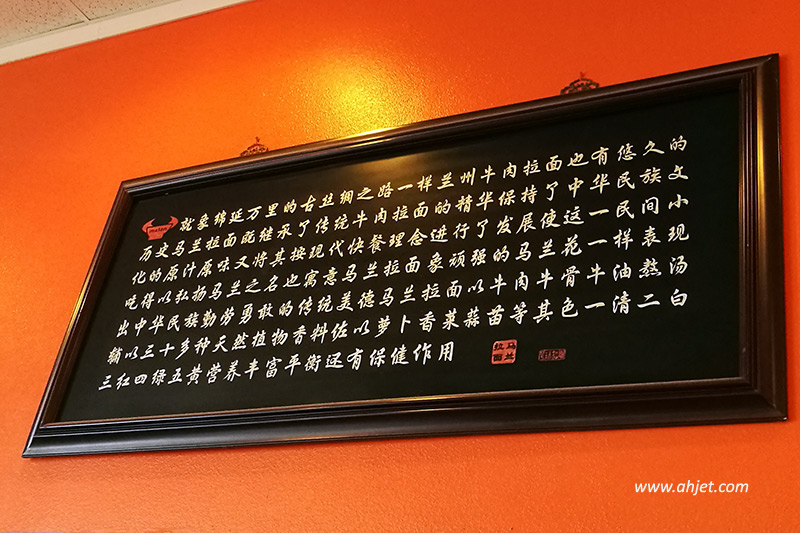 就象绵延万里的古丝绸之路一样兰州牛肉拉面也有悠久的
历史马兰拉面既继承了传统牛肉拉面的精华保持了中华民族文
化的原汁原味又将其按现代快餐理念进行了发展使这一民间小
吃得以弘扬马兰之名也寓意马兰拉面象顽强的马兰花一样表现
出中华民族勤劳勇敢的传统美德马兰拉面以牛肉牛骨牛油熬汤
辅以三十多种天然植物香料佐以萝卜香菜蒜苗等其色一清二白
三红四绿五黄营养丰富平衡还有保健作用
马兰
拉面
www.ahjet.com